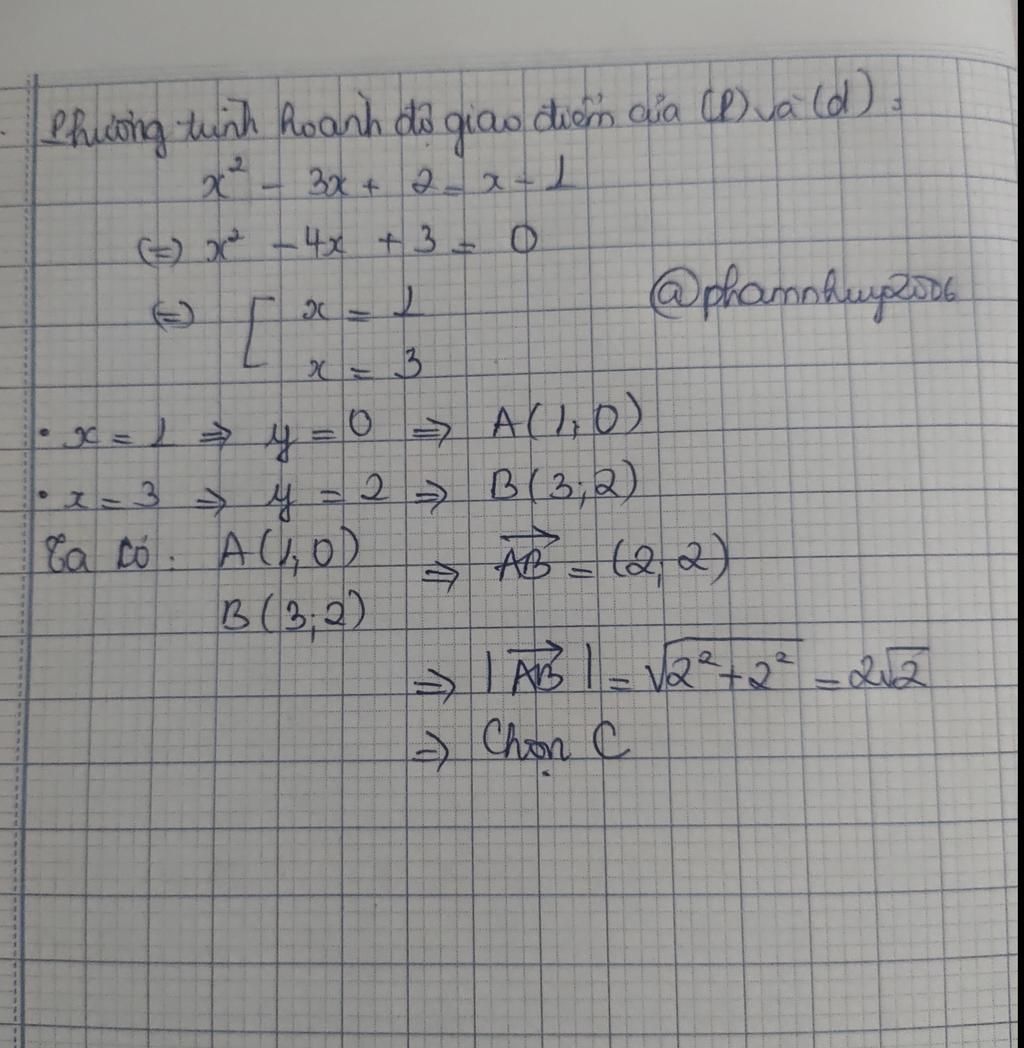 Phương trình hoành độ giao điểm của (P) và (d):
x² - 3x + 2 = x - 1
(=) x² - 4x + 3 = 0
(=) [ x = 1
x = 3
@phamnhuy2006
• x = 1 ⇒ y = 0 ⇒ A(1;0)
• x = 3 ⇒ y = 2 ⇒ B(3;2)
Ta có: A(1;0)
B(3;2)
⇒ \overrightarrow{AB} = (2;2)
⇒ |\overrightarrow{AB}| = √(2² + 2²) = 2√2
⇒ Chọn C